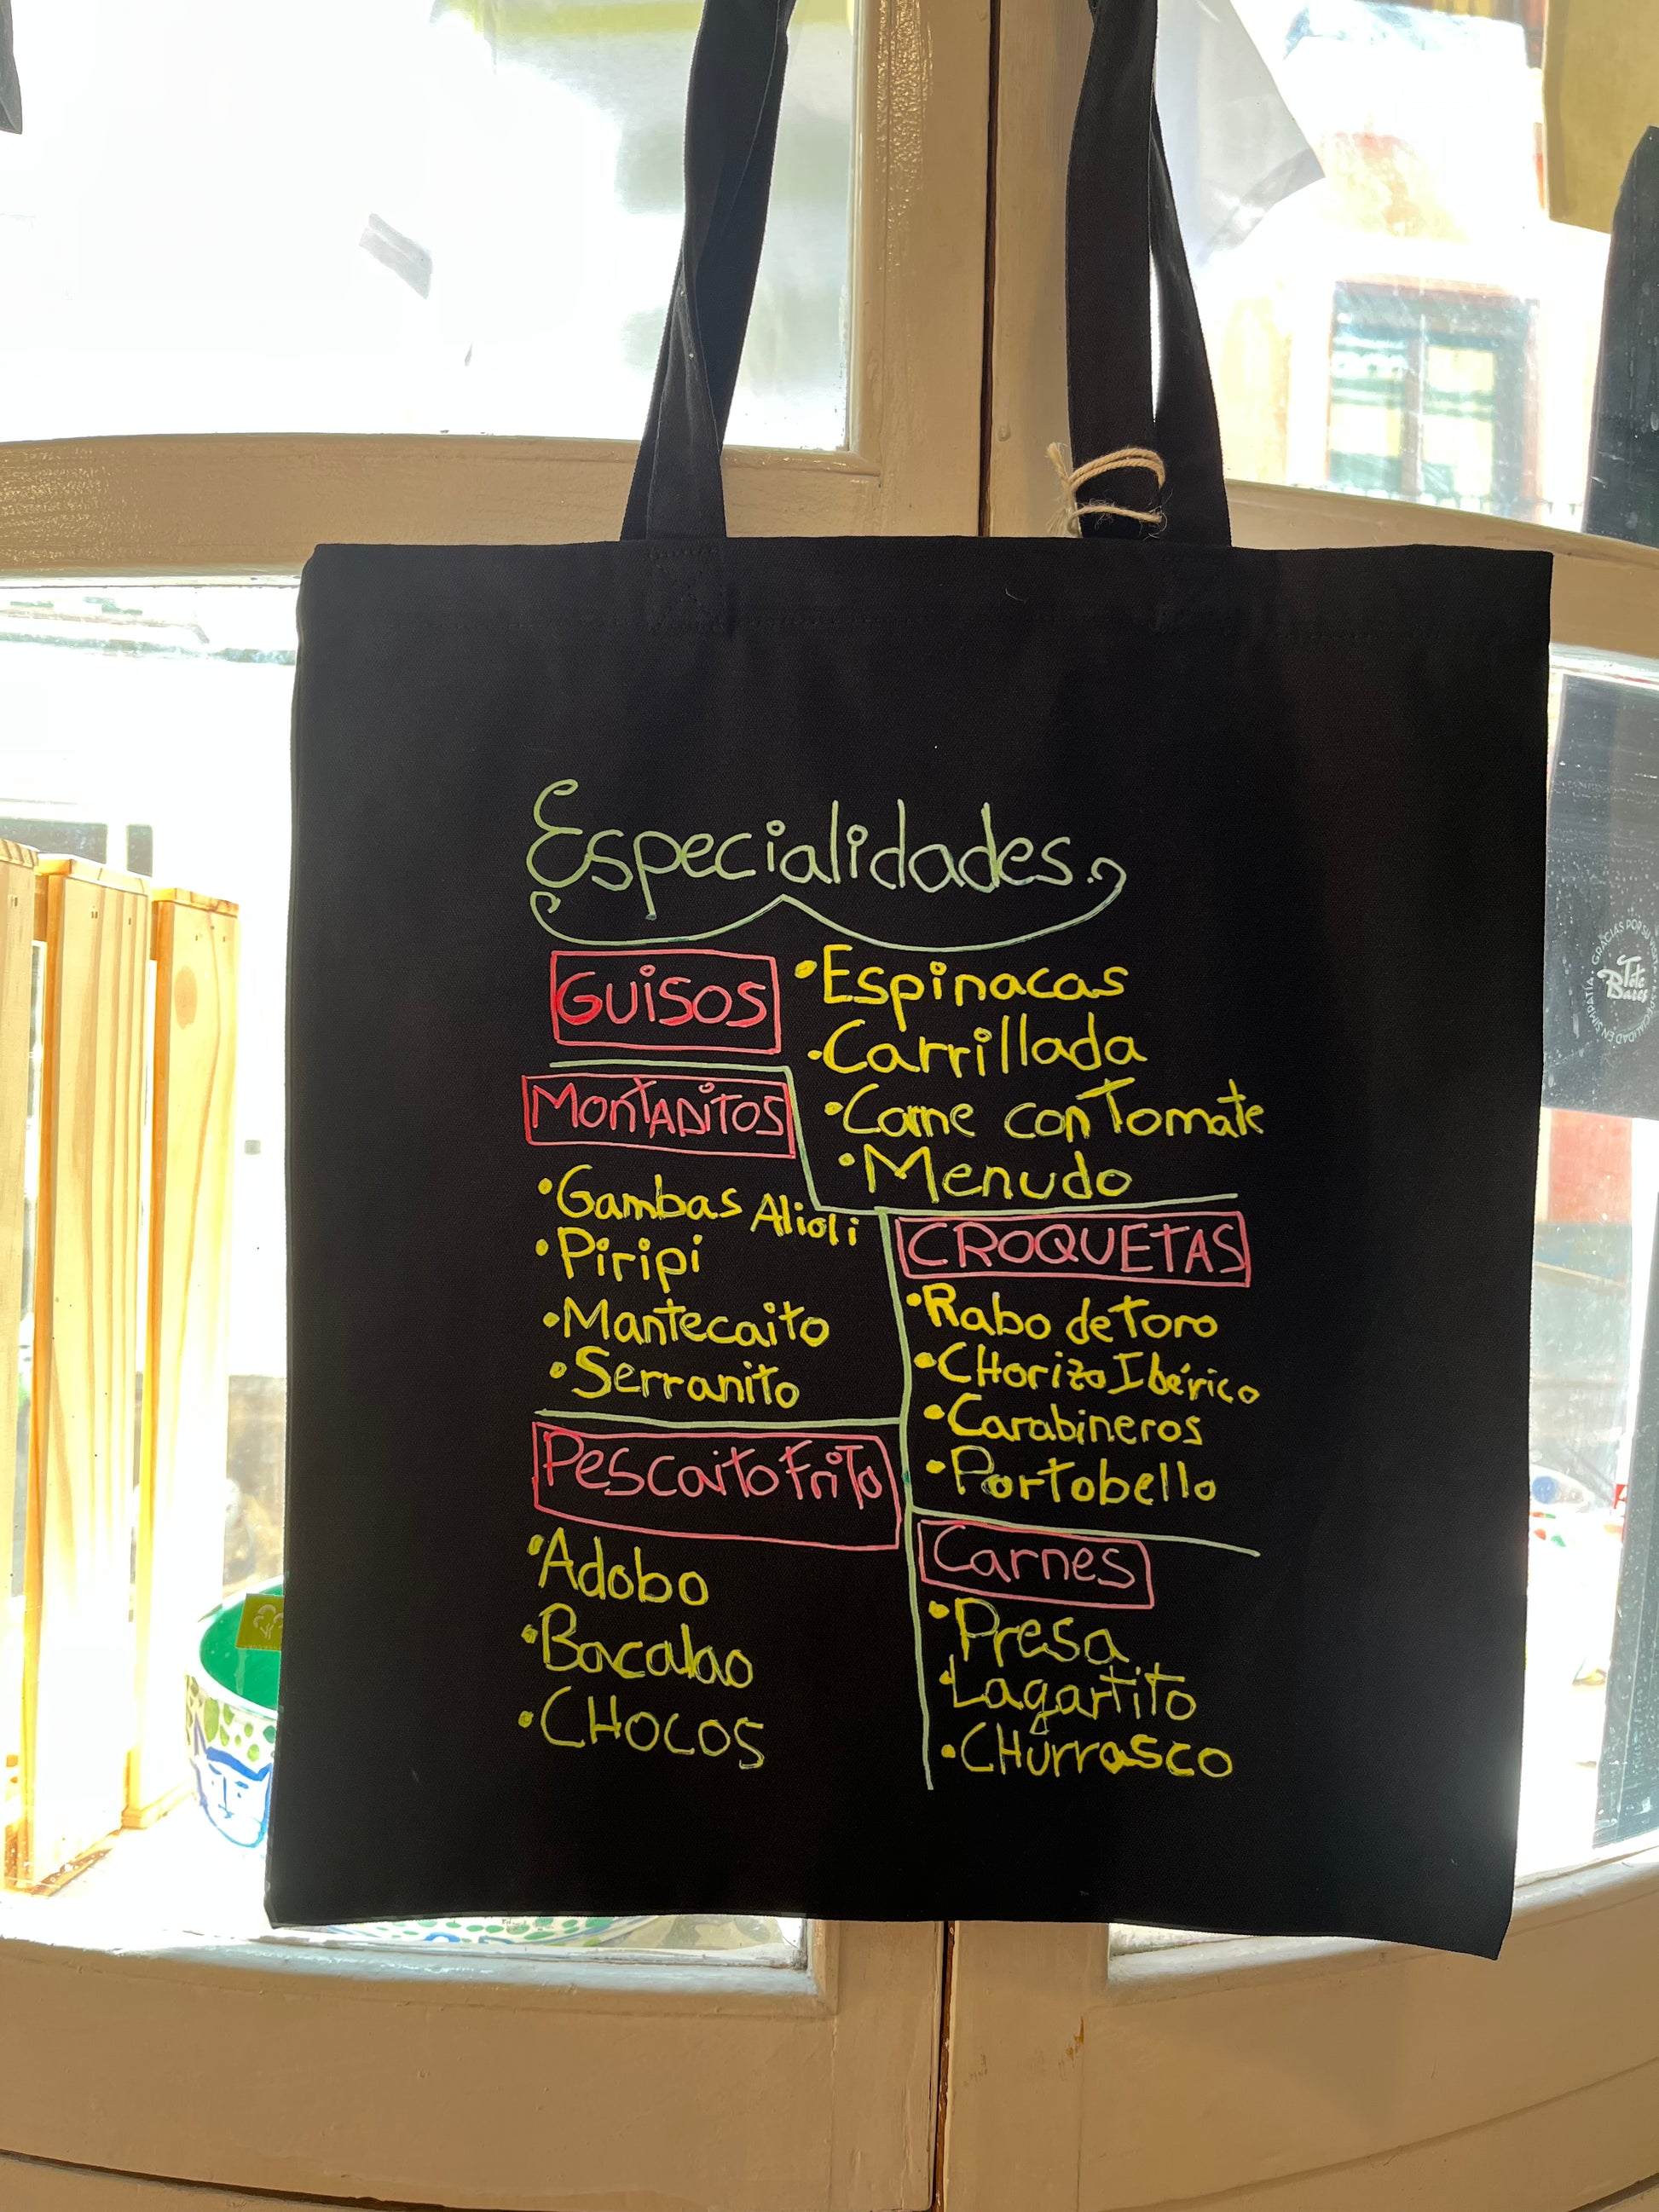 Especialidades.
GUISOS
• Espinacas
• Carrillada
• Carne con Tomate
• Menudo
MONTADITOS
• Gambas Alioli
• Piripi
• Mantecaito
• Serranito
CROQUETAS
• Rabo de Toro
• CHorizo Ibérico
• Carabineros
• Portobello
Pescaito Frito
• Adobo
• Bacalao
• CHOCOS
Carnes
• Presa
• Lagartito
• CHurrasco
GRACIAS POR SU VISITA
ESPECIALIDAD EN SIMPATÍA